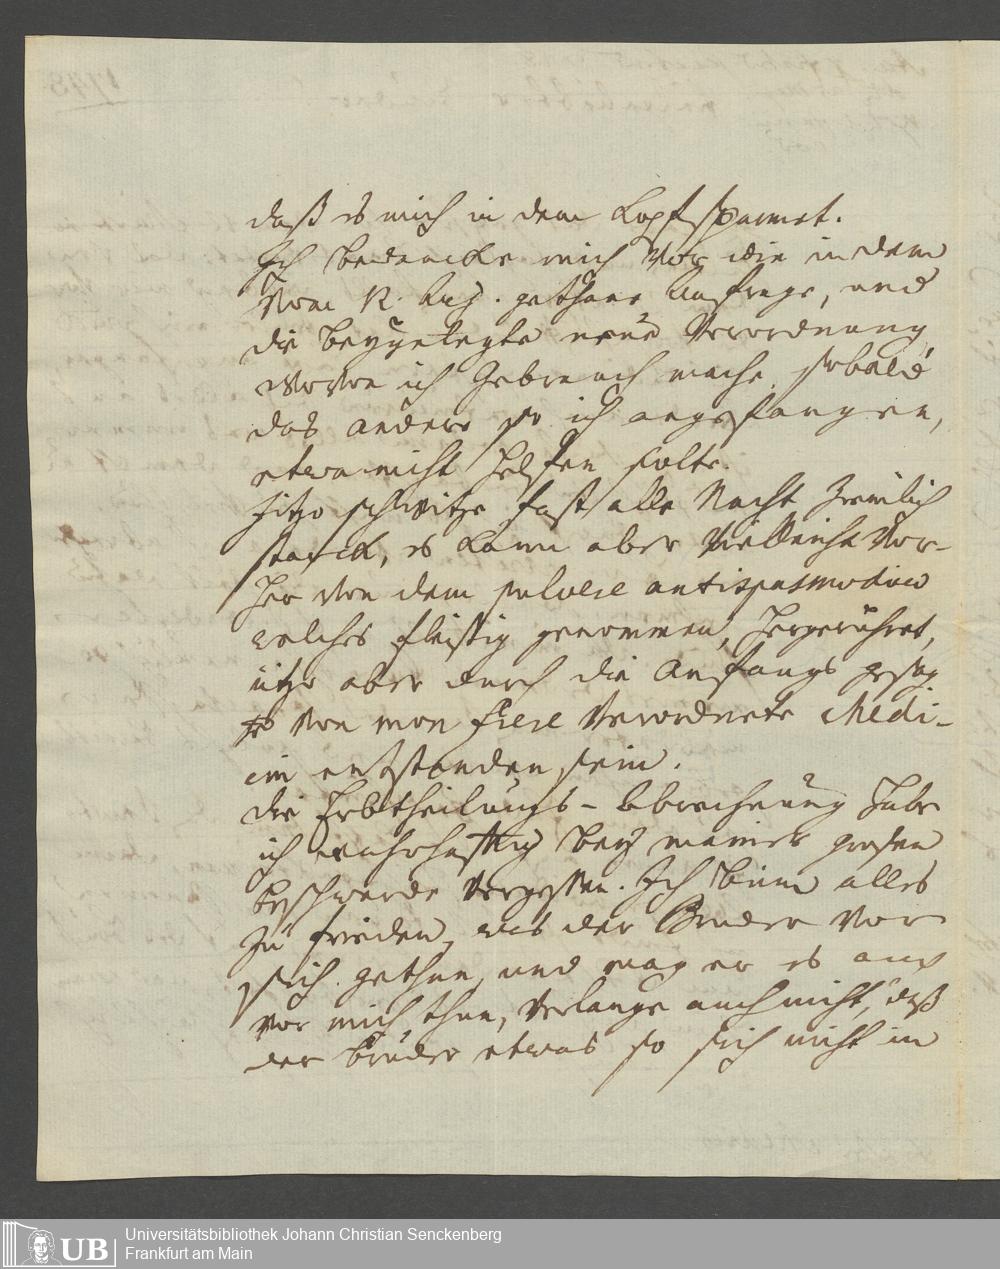 daß es mich in dem Kopf spannet.
Ich bedancke mich vor die in dem
vom 12. Aug. gethane Anfrage, und
die beygelegte neue Verordnung
wovon ich Gebrauch mache, sobald
das andere so ich angefangen,
etwa nicht helfen solte.
Jtzo schwitze fast alle Nacht ziemlich
starck, es kann aber vielleicht vor-
her von dem pulvere antispasmodico
welches fleisig genommen, hergerühret,
itzo aber durch die Anfangs gesag
te von mon frere verordnete Medi-
cin entstanden sein.
die Erbtheilungs-Abrechnung habe
ich wahrhafftig bey meiner grosen
beschwerde vergessen. Ich binn alles
zu frieden, was der Bruder vor
sich gethan, und mag er es auch
vor mich thun, verlange auch nicht, daß
der Bruder etwas so sich nicht in
Universitätsbibliothek Johann Christian Senckenberg
Frankfurt am Main
UB